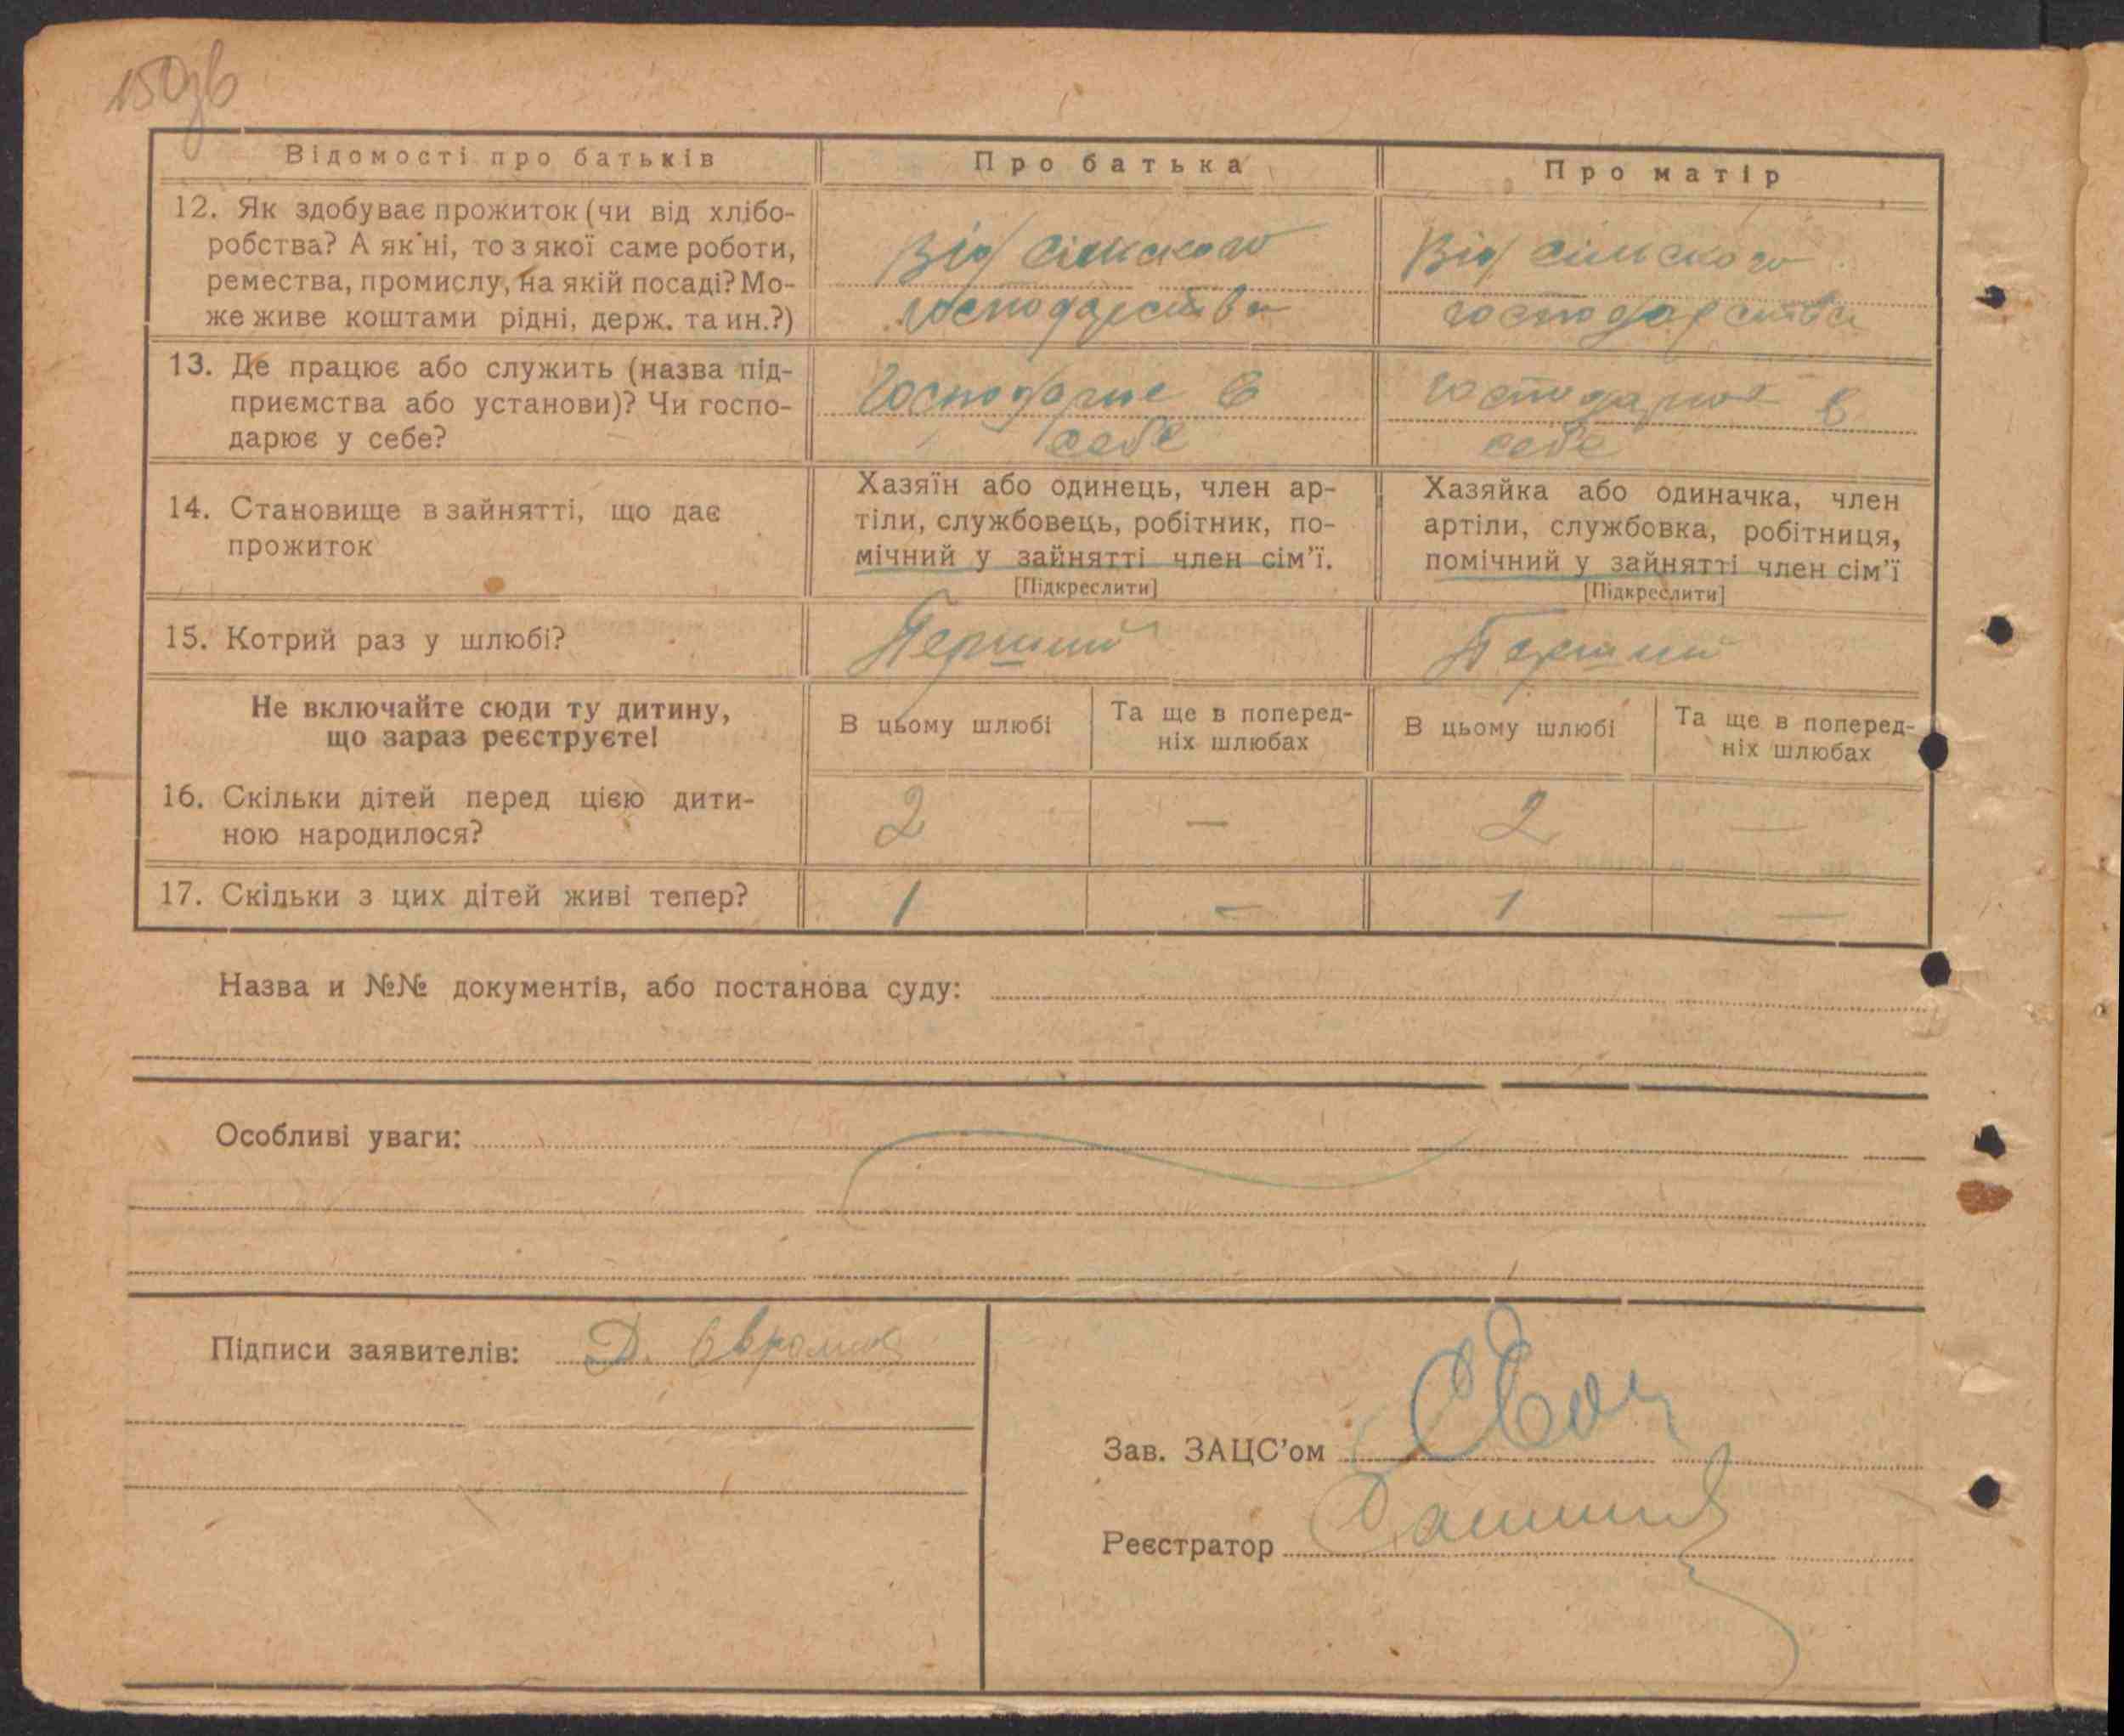 150зв
Відомості про батьків
Про батька
Про матір
12. Як здобуває прожиток (чи від хлібо-
робства? А як ні, то з якої саме роботи,
ремества, промислу, на якій посаді? Мо-
же живе коштами рідні, держ. та ин.?)
Від сільського
господарства
Від сільського
господарства
13. Де працює або служить (назва під-
приємства або установи)? Чи госпо-
дарює у себе?
Господарює в
себе
Господарює в
себе
14. Становище в зайнятті, що дає
прожиток
Хазяїн або одинець, член ар-
тіли, службовець, робітник, по-
мічний у зайнятті член сім'ї.
[Підкреслити]
Хазяйка або одиначка, член
артіли, службовка, робітниця,
помічний у зайнятті член сім'ї
[Підкреслити]
15. Котрий раз у шлюбі?
Перший
Перший
Не включайте сюди ту дитину,
що зараз реєструєте!
В цьому шлюбі
Та ще в поперед-
ніх шлюбах
В цьому шлюбі
Та ще в поперед-
ніх шлюбах
16. Скільки дітей перед цією дити-
ною народилося?
2 — 2 —
17. Скільки з цих дітей живі тепер?
1 — 1 —
Назва и №№ документів, або постанова суду:
Особливі уваги:
Підписи заявителів: Д.
Зав. ЗАЦС'ом
Реєстратор